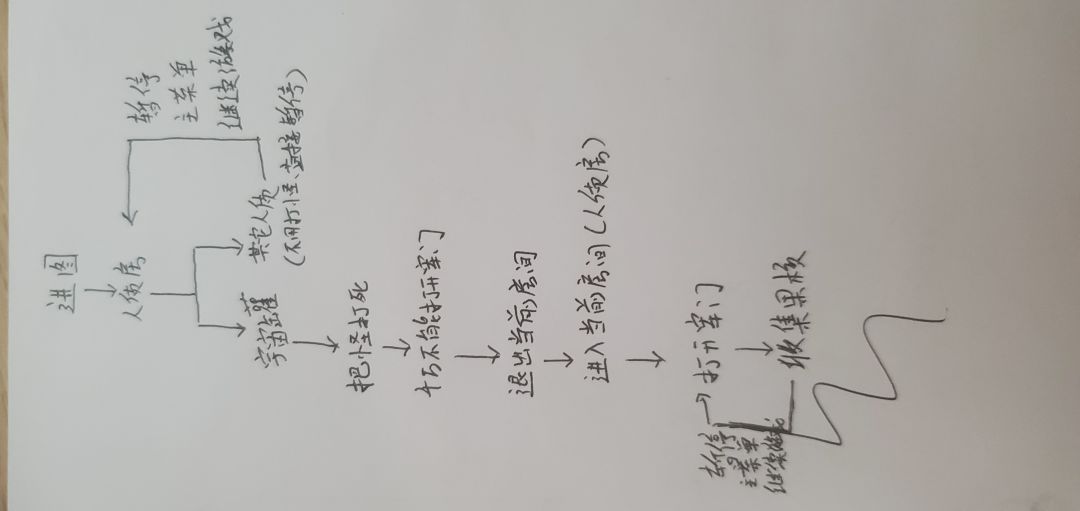 进图
人质房
暂停
主菜单
继续游戏
其它人质
(不用打怪、直接暂停)
宇宙萝
把怪打死
千万不能打开牢门
退出当前房间
进入当前房间(人质房)
打开牢门
收集果核
暂停
主菜单
继续游戏